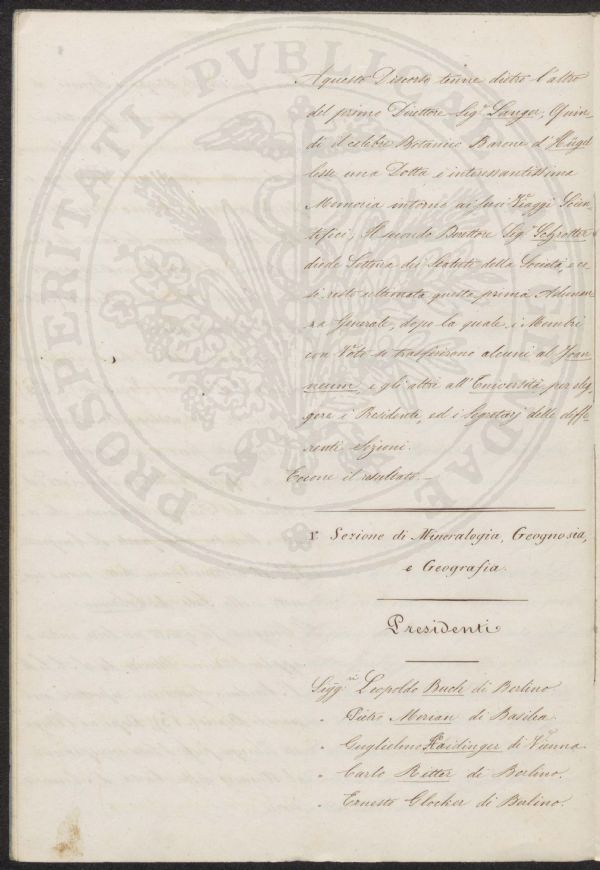 PROSPERITATI PVBLICAE AVGENDAE
A questo Discorso tenne dietro l'altro
del primo Direttore Sigr Langer, Quin-
di il celebre Botanico Barone d'Hügel
lesse una Dotta e interessantissima
Memoria intorno ai suoi Viaggi Scien-
tifici, Il secondo Direttore Sigr Schrotter
diede Lettura dei Statuti della Società, e co
si restò ultimata questa prima Adunan-
za Generale, dopo la quale, i Membri
con Voto si trasferirono alcuni al Joan-
neum, e gli altri all'Università per eleg-
gere i Presidenti, ed i Segretarj delle diffe-
renti Sezioni.
Eccone il resultato.—
1a Sezione di Mineralogia, Geognosia,
e Geografia.
Presidenti
Sigg.ri Leopoldo Buch di Berlino
" Pietro Merian di Basilea
" Guglielmo Haidinger di Vienna
" Carlo Ritter di Berlino.
" Ernesto Glocker di Berlino.